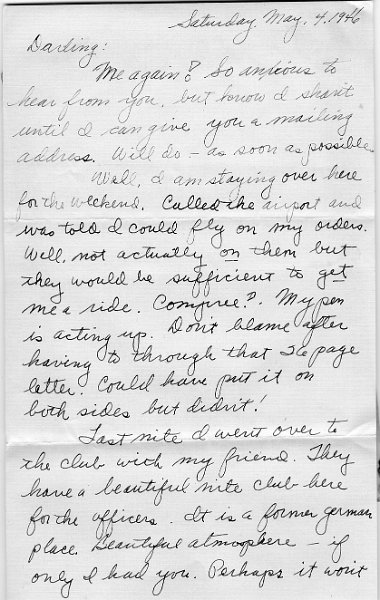 Saturday, May. 4. 1946
Darling:
Me again? So anxious to
hear from you, but know I shan't
until I can give you a mailing
address. Will do - as soon as possible.
Well, I am staying over here
for the weekend. Called the airport and
was told I could fly on my orders.
Well, not actually on them but
they would be sufficient to get
me a ride. Compree?. My pen
is acting up. Don't blame after
having to through that 26 page
letter. Could have put it on
both sides but didn't!
Last nite I went over to
the club with my friend. They
have a beautiful nite club here
for the officers. It is a former german
place. Beautiful atmosphere - if
only I had you. Perhaps it won't